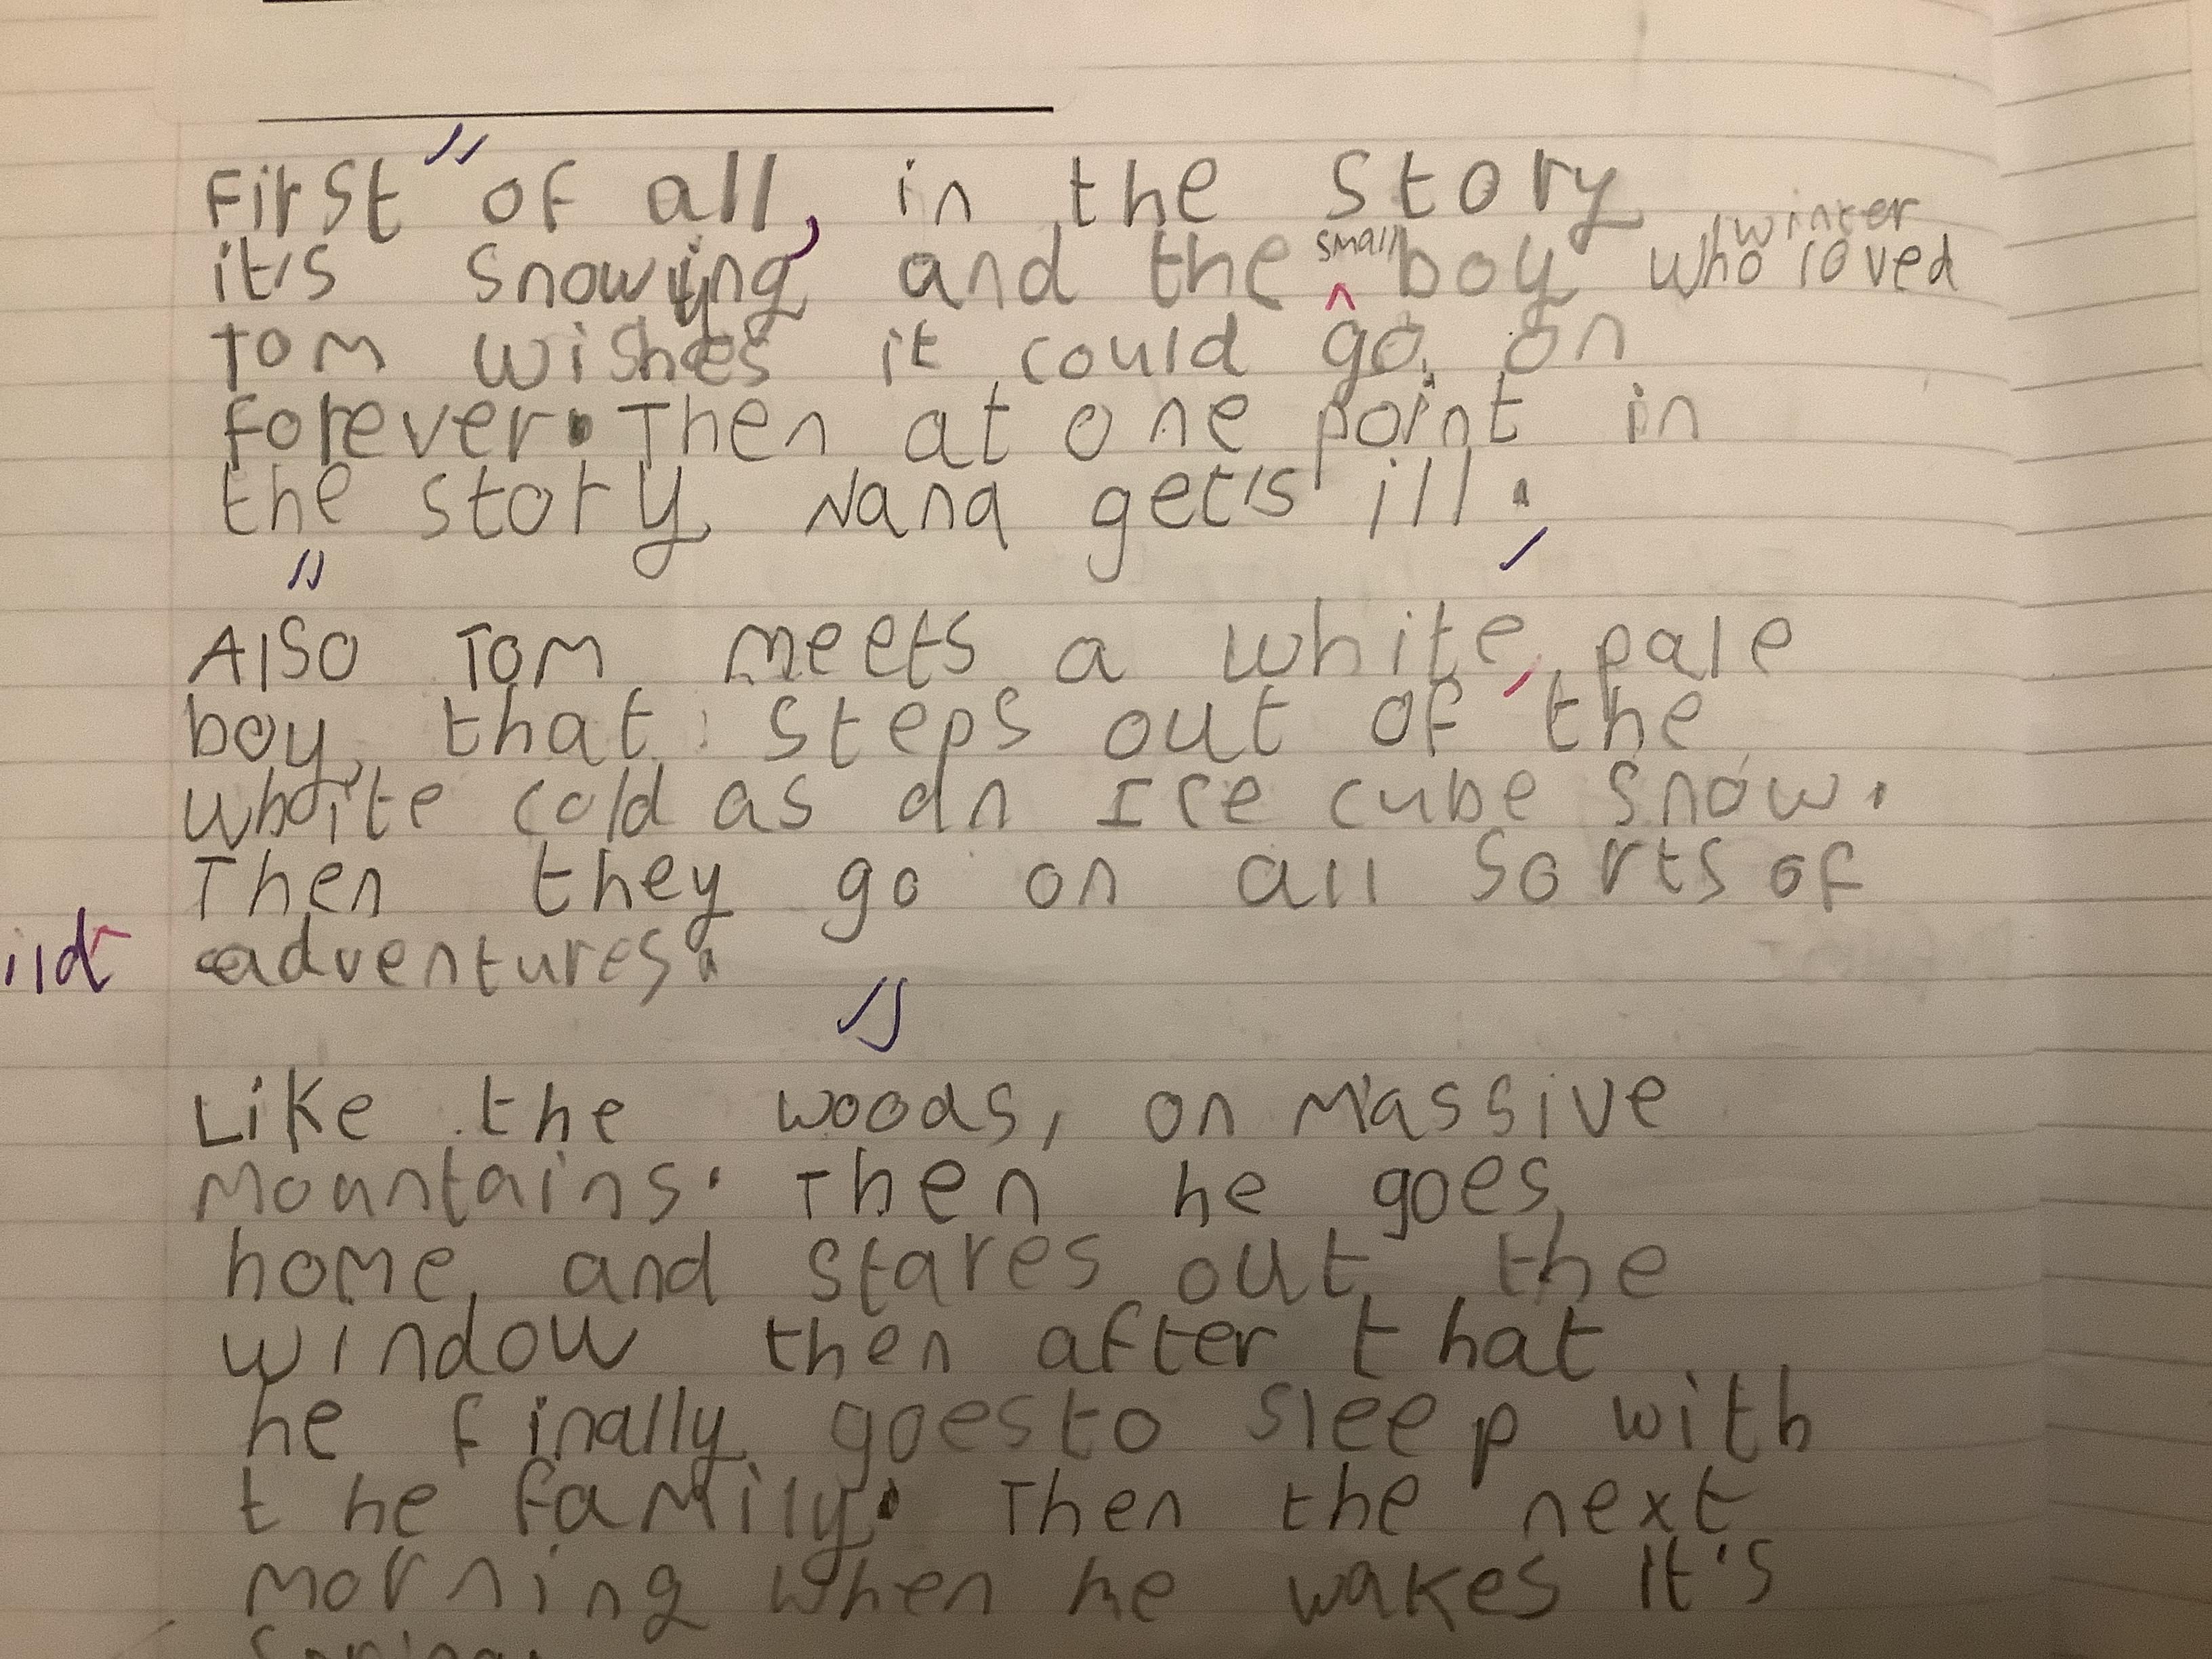 First of all, in the story
winter
it's snowying, and the small boy who loved
Tom wishes it could go on
forever. Then at one point in
the story Nana get's ill.
Also Tom meets a white, pale
boy, that steps out of the
white cold as an Ice cube snow.
Then they go on all sorts of
adventures.
Like the woods, on Massive
Mountains. Then he goes
home and stares out the
window then after that
he finally goes to sleep with
the family. Then the next
Morning when he wakes it's